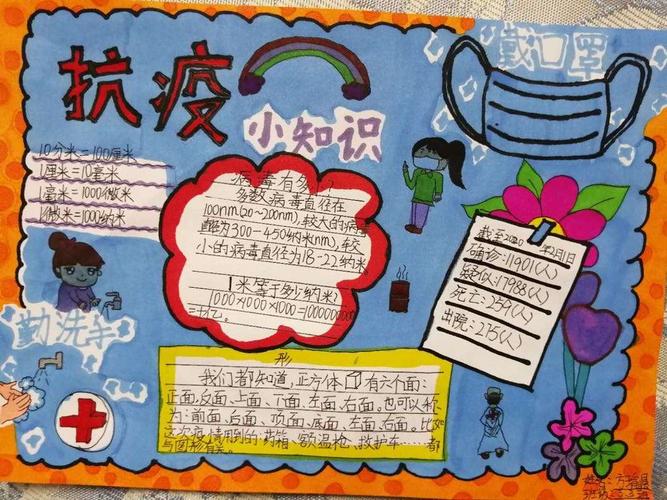 抗疫
小知识
戴口罩
10分米=100厘米
1厘米=10毫米
1毫米=1000微米
1微米=1000纳米
病毒有多小?
多数病毒直径在
100nm(20~200nm),较大的病毒
直径为300-450纳米(nm),较
小的病毒直径为18-22纳米
1米等于多少纳米?
1000×1000×1000=1000000000
=十亿。
截至2020年2月1日
确诊:11901(人)
疑似:17988(人)
死亡:259(人)
出院:275(人)
勤洗手
形
我们都知道,正方体有六个面:
正面,反面、上面、下面、左面、右面。也可以称
为:前面、后面、顶面、底面、左面、右面。比如
这次疫情用到的:药箱、额温枪、救护车……都
姓名:
班级: